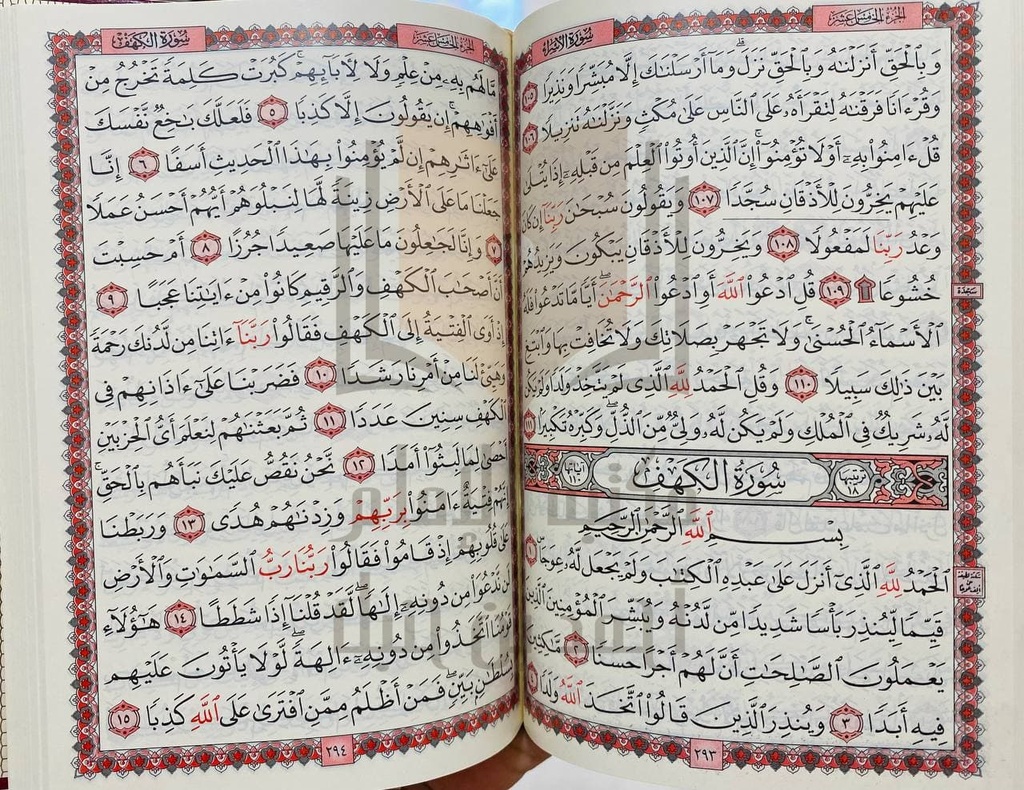 الجزء الخامس عشر
سورة الإسراء
وَبِالْحَقِّ أَنزَلْنَٰهُ وَبِالْحَقِّ نَزَلَ وَمَا أَرْسَلْنَٰكَ إِلَّا مُبَشِّرًا وَنَذِيرًا ١٠٥
وَقُرْءَانًا فَرَقْنَٰهُ لِتَقْرَأَهُ عَلَى النَّاسِ عَلَىٰ مُكْثٍ وَنَزَّلْنَٰهُ تَنزِيلًا ١٠٦
قُلْ ءَامِنُوا بِهِ أَوْ لَا تُؤْمِنُوا إِنَّ الَّذِينَ أُوتُوا الْعِلْمَ مِن قَبْلِهِ إِذَا يُتْلَىٰ
عَلَيْهِمْ يَخِرُّونَ لِلْأَذْقَانِ سُجَّدًا ١٠٧ وَيَقُولُونَ سُبْحَٰنَ رَبِّنَا إِن كَانَ
وَعْدُ رَبِّنَا لَمَفْعُولًا ١٠٨ وَيَخِرُّونَ لِلْأَذْقَانِ يَبْكُونَ وَيَزِيدُهُمْ
خُشُوعًا ۩ ١٠٩ قُلِ ادْعُوا اللَّهَ أَوِ ادْعُوا الرَّحْمَٰنَ أَيًّا مَّا تَدْعُوا فَلَهُ
سجدة
الْأَسْمَاءُ الْحُسْنَىٰ وَلَا تَجْهَرْ بِصَلَاتِكَ وَلَا تُخَافِتْ بِهَا وَابْتَغِ
بَيْنَ ذَٰلِكَ سَبِيلًا ١١٠ وَقُلِ الْحَمْدُ لِلَّهِ الَّذِي لَمْ يَتَّخِذْ وَلَدًا وَلَمْ يَكُن
لَّهُ شَرِيكٌ فِي الْمُلْكِ وَلَمْ يَكُن لَّهُ وَلِيٌّ مِّنَ الذُّلِّ وَكَبِّرْهُ تَكْبِيرًا ١١١
ترتيبها ١٨ سُورَةُ الْكَهْفِ آياتها ١١٠
بِسْمِ اللَّهِ الرَّحْمَٰنِ الرَّحِيمِ
الْحَمْدُ لِلَّهِ الَّذِي أَنزَلَ عَلَىٰ عَبْدِهِ الْكِتَٰبَ وَلَمْ يَجْعَل لَّهُ عِوَجَا ١
قَيِّمًا لِّيُنذِرَ بَأْسًا شَدِيدًا مِّن لَّدُنْهُ وَيُبَشِّرَ الْمُؤْمِنِينَ الَّذِينَ
يَعْمَلُونَ الصَّٰلِحَٰتِ أَنَّ لَهُمْ أَجْرًا حَسَنًا ٢ مَّٰكِثِينَ
فِيهِ أَبَدًا ٣ وَيُنذِرَ الَّذِينَ قَالُوا اتَّخَذَ اللَّهُ وَلَدًا ٤
٢٩٣
الجزء الخامس عشر
سورة الكهف
مَّا لَهُم بِهِ مِنْ عِلْمٍ وَلَا لِآبَائِهِمْ كَبُرَتْ كَلِمَةً تَخْرُجُ مِنْ
أَفْوَٰهِهِمْ إِن يَقُولُونَ إِلَّا كَذِبًا ٥ فَلَعَلَّكَ بَٰخِعٌ نَّفْسَكَ
عَلَىٰ ءَاثَٰرِهِمْ إِن لَّمْ يُؤْمِنُوا بِهَٰذَا الْحَدِيثِ أَسَفًا ٦ إِنَّا
جَعَلْنَا مَا عَلَى الْأَرْضِ زِينَةً لَّهَا لِنَبْلُوَهُمْ أَيُّهُمْ أَحْسَنُ عَمَلًا
٧ وَإِنَّا لَجَٰعِلُونَ مَا عَلَيْهَا صَعِيدًا جُرُزًا ٨ أَمْ حَسِبْتَ
أَنَّ أَصْحَٰبَ الْكَهْفِ وَالرَّقِيمِ كَانُوا مِنْ ءَايَٰتِنَا عَجَبًا ٩
إِذْ أَوَى الْفِتْيَةُ إِلَى الْكَهْفِ فَقَالُوا رَبَّنَا ءَاتِنَا مِن لَّدُنكَ رَحْمَةً
وَهَيِّئْ لَنَا مِنْ أَمْرِنَا رَشَدًا ١٠ فَضَرَبْنَا عَلَىٰ ءَاذَانِهِمْ فِي
الْكَهْفِ سِنِينَ عَدَدًا ١١ ثُمَّ بَعَثْنَٰهُمْ لِنَعْلَمَ أَيُّ الْحِزْبَيْنِ
أَحْصَىٰ لِمَا لَبِثُوا أَمَدًا ١٢ نَّحْنُ نَقُصُّ عَلَيْكَ نَبَأَهُم بِالْحَقِّ
إِنَّهُمْ فِتْيَةٌ ءَامَنُوا بِرَبِّهِمْ وَزِدْنَٰهُمْ هُدًى ١٣ وَرَبَطْنَا
عَلَىٰ قُلُوبِهِمْ إِذْ قَامُوا فَقَالُوا رَبُّنَا رَبُّ السَّمَٰوَٰتِ وَالْأَرْضِ
لَن نَّدْعُوَا مِن دُونِهِ إِلَٰهًا لَّقَدْ قُلْنَا إِذًا شَطَطًا ١٤ هَٰؤُلَاءِ
قَوْمُنَا اتَّخَذُوا مِن دُونِهِ ءَالِهَةً لَّوْلَا يَأْتُونَ عَلَيْهِم
بِسُلْطَٰنٍ بَيِّنٍ فَمَنْ أَظْلَمُ مِمَّنِ افْتَرَىٰ عَلَى اللَّهِ كَذِبًا ١٥
٢٩٤